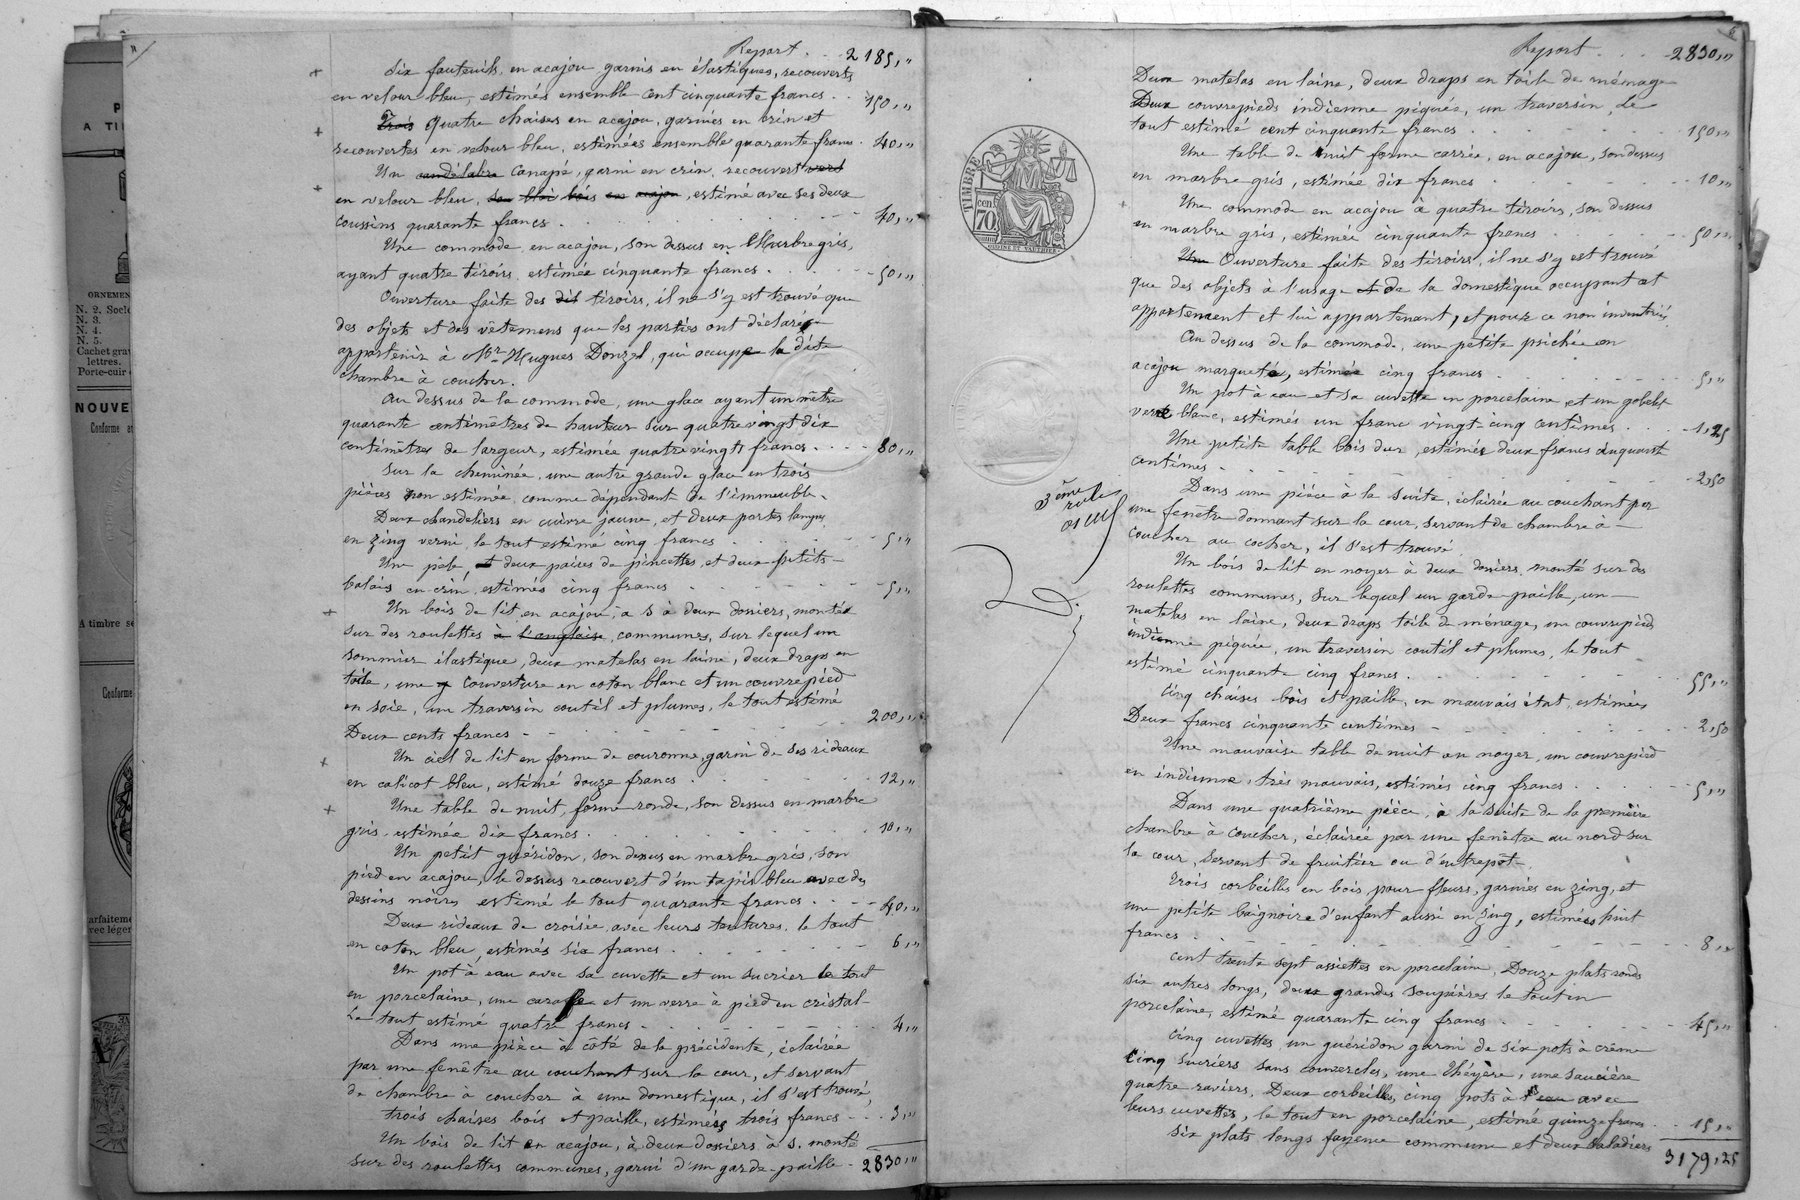 Report . . 2185,"
Six fauteuils, en acajou garnis en élastiques, recouverts
en velour bleu, estimés ensemble cent cinquante francs . . 150,"
Trois Quatre chaises en acajou, garnies en crin et
recouvertes en velour bleu, estimées ensemble quarante francs . 40,"
Un candélabre Canapé, garni en crin, recouvert vert
en velour bleu, son bois bois en acajou, estimé avec ses deux
coussins quarante francs . 40,"
Une commode en acajou, son dessus en Marbre gris,
ayant quatre tiroirs, estimée cinquante francs . 50,"
Ouverture faite des dit tiroirs, il ne s'y est trouvé que
des objets et des vêtemens que les parties ont déclaré
appartenir à Mr Hugues Donzel, qui occupe la dite
chambre à coucher.
Au dessus de la commode, une glace ayant un mètre
quarante centimètres de hauteur sur quatre vingt dix
centimètres de largeur, estimée quatre vingts francs . 80,"
Sur la cheminée, une autre grande glace en trois
pièces non estimée, comme dépendant de l'immeuble.
Deux chandeliers en cuivre jaune, et deux portes lampes
en zing verni, le tout estimé cinq francs . 5,"
Une pèle, et deux paires de pincettes, et deux petits
balais en crin, estimés cinq francs . 5,"
Un bois de lit en acajou, à S à deux dossiers, montée
sur des roulettes à l'anglaise, communes, sur lequel un
sommier élastique, deux matelas en laine, deux draps en
toile, une couverture en coton blanc et un couvrepied
en soie, un traversin coutil et plumes, le tout estimé
Deux cents francs - 200,"
Un ciel de lit en forme de couronne, garni de ses rideaux
en calicot bleu, estimé douze francs . 12,"
Une table de nuit, forme ronde, son dessus en marbre
gris, estimée dix francs . 10,"
Un petit guéridon, son dessus en marbre gris, son
pied en acajou, le dessus recouvert d'un tapis bleu avec des
dessins noirs, estimé le tout quarante francs . 40,"
Deux rideaux de croisée, avec leurs tentures, le tout
en coton bleu, estimés six francs . 6,"
Un pot à eau avec sa cuvette et un sucrier le tout
en porcelaine, une carafe et un verre à pied en cristal
Le tout estimé quatre francs . 4,"
Dans une pièce à côté de la précédente, éclairée
par une fenêtre au couchant sur la cour, et servant
de chambre à coucher à une domestique, il s'est trouvé,
trois chaises bois et paille, estimées trois francs - 3,"
Un bois de lit en acajou, à deux dossiers à S. monté
sur des roulettes communes, garni d'un garde-paille - 2830,"
6
Report . . . 2830,"
Deux matelas en laine, deux draps en toile de ménage
Deux couvrepieds indienne piquée, un traversin, Le
tout estimé cent cinquante francs . 150,"
Une table de nuit forme carrée, en acajou, son dessus
en marbre gris, estimée dix francs . 10,"
Une commode en acajou à quatre tiroirs, son dessus
en marbre gris, estimée cinquante francs . 50,"
Une Ouverture faite des tiroirs, il ne s'y est trouvé
que des objets à l'usage et de la domestique occupant cet
appartement et lui appartenant, et pour ce non inventoriés
Au dessus de la commode, une petite psichée en
acajou marqueté, estimée cinq francs . 5,"
Un pot à eau et sa cuvette en porcelaine et un gobelet
verre blanc, estimés un franc vingt cinq centimes . 1,25
Une petite table bois dur, estimée deux francs cinquante
centimes - 2,50
TIMBRE
cent
70
3ème
rôle
Dans une pièce à la suite, éclairée au couchant par
une fenêtre donnant sur la cour, servant de chambre à
coucher au cocher, il s'est trouvé.
Un bois de lit en noyer à deux dossiers, monté sur des
roulettes communes, sur lequel un garde-paille, un
matelas en laine, deux draps toile de ménage, un couvrepied
indienne piquée, un traversin coutil et plumes, le tout
estimé cinquante cinq francs . 55,"
Cinq chaises bois et paille, en mauvais état, estimées
Deux francs cinquante centimes - 2,50
Une mauvaise table de nuit en noyer, un couvrepied
en indienne, très mauvais, estimés cinq francs . 5,"
Dans une quatrième pièce, à la suite de la première
chambre à coucher, éclairée par une fenêtre au nord sur
la cour, servant de fruitier ou d'entrepôt.
Trois corbeilles en bois, pour fleurs, garnies en zing, et
une petite baignoire d'enfant aussi en zing, estimées huit
francs . 8,"
Cent trente sept assiettes en porcelaine, Douze plats ronds
six autres longs, deux grandes soupières le tout en
porcelaine, estimé quarante cinq francs . 45,"
Cinq cuvettes, un guéridon garni de six pots à crème
Cinq sucriers sans couvercles, une théyère, une saucière
quatre raviers, Deux corbeilles, cinq pots à eau avec
leurs cuvettes, le tout en porcelaine, estimé quinze francs . 15,"
Six plats longs fayence commune et deux saladiers
3179,25
A TI
ORNEMEN
N. 2. Socle
N. 3.
N. 4.
N. 5.
Cachet gra
lettres.
Porte-cuir
NOUVE
Conforme
A timbre
Conforme